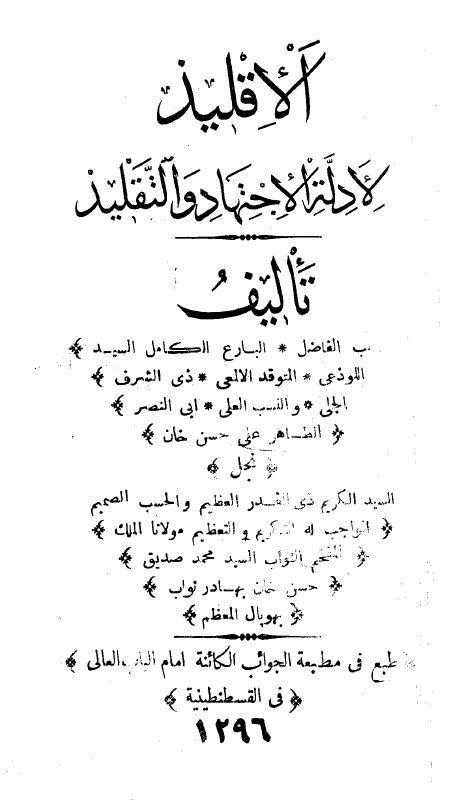 أَلْإِقْلِيدْ
لِأَدِلَّةِ الْإِجْتِهَادِ وَالتَّقْلِيدْ
تَأْلِيفُ
الفاضل * البارع الكامل السيد ﴾
اللوذعى * المتوقد الالمعى * ذى الشرف ﴾
الجلى * والنسب العلى * ابى النصر ﴾
﴿ الطاهر على حسن خان ﴾
﴿ نجل ﴾
السيد الكريم ذى القدر العظيم والحسب الصميم
﴿ الواجب له التكريم و التعظيم مولانا الملك ﴾
﴿ المفخم النواب السيد محمد صديق ﴾
﴿ حسن خان بهادر نواب ﴾
﴿ بهوپال المعظم ﴾
طبع فى مطبعة الجوائب الكائنة امام الباب العالى ﴾
﴿ فى القسطنطينية ﴾
١٢٩٦